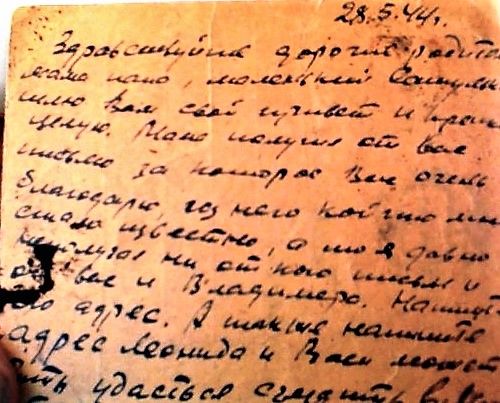 28.5.44г.
Здравствуйте дорогие родите
мама папа, маленький
шлю Вам свой привет и
целую. Мама получил от вас
письмо за которое Вам очень
благодарю, из него кой что мне
стало известно, а то я давно
не получал ни от кого письма и
от вас и Владимера. Напиш
его адрес. А также напишите
адрес Леонида и Васи может
быть удасться съездить в